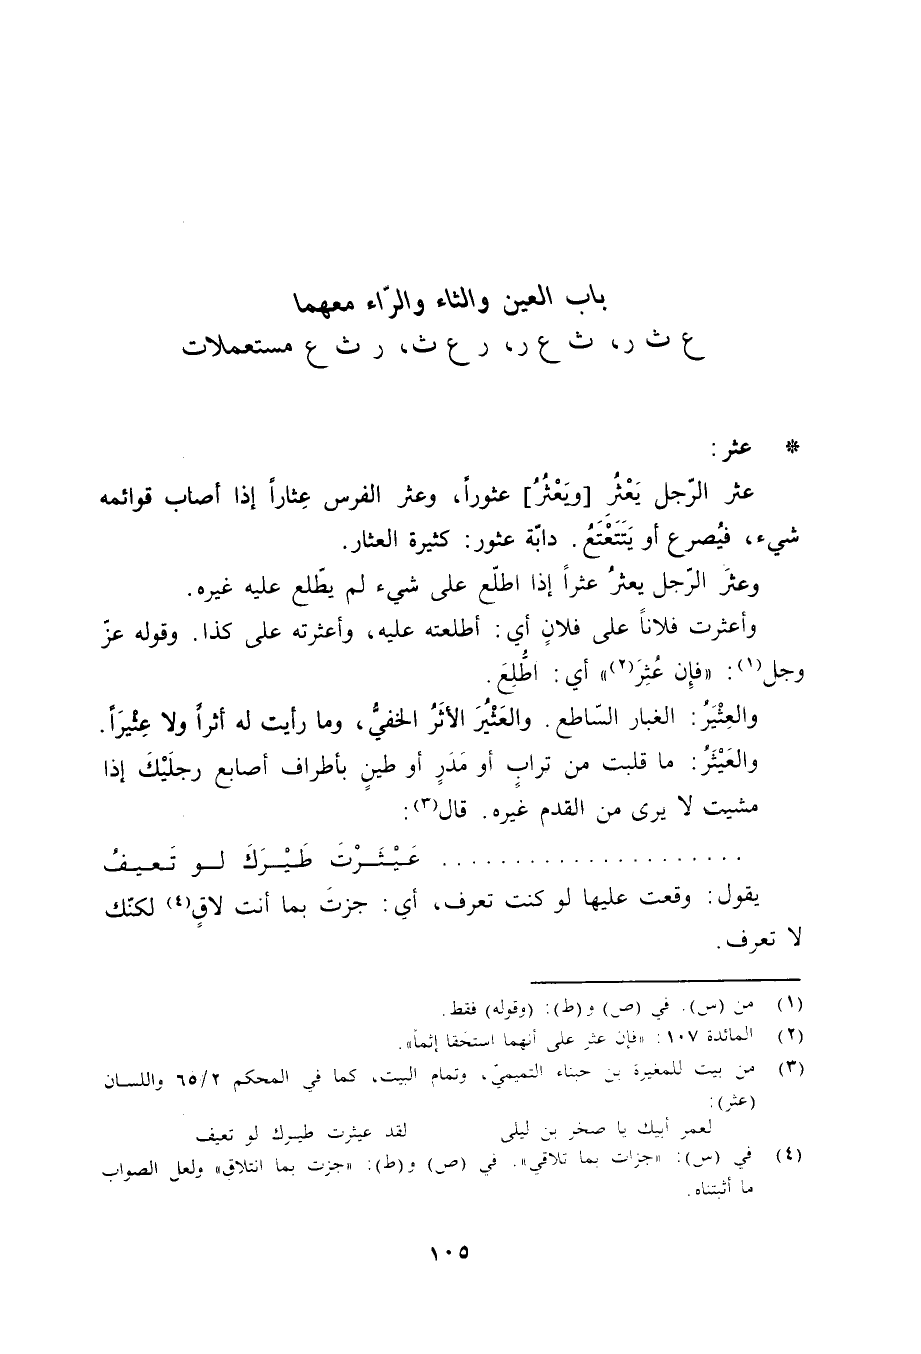 باب العين والثاء والرّاء معهما
ع ث ر، ث ع ر، ر ع ث، ر ث ع مستعملات
* عثر :
عثر الرّجل يَعْثُرُ [ويَعْثُرُ] عثوراً، وعثر الفرس عِثاراً إذا أصاب قوائمه
شيء، فيُصرع أو يَتَتَعْتَعُ. دابّة عثور: كثيرة العثار.
وعثرَ الرّجل يعثرُ عثراً إذا اطلّع على شيء لم يطّلع عليه غيره.
وأعثرت فلاناً على فلانٍ أي: أطلعته عليه، وأعثرته على كذا. وقوله عزّ
وجل(١): «فإن عُثِرَ(٢)» أي: اطُّلِعَ.
والعِثْيَرُ: الغبار السّاطع. والعَثْيُرَ الأثَرُ الخفيُّ، وما رأيت له أثراً ولا عِثْيَراً.
والعَيْثَرُ: ما قلبت من ترابٍ أو مَدَرٍ أو طينٍ بأطراف أصابع رجلَيْكَ إذا
مشيت لا يرى من القدم غيره. قال(٣):
. . . . . . . . . . . . . . . . . . . . عَيْـثَـرْتَ طَيْـرَكَ لـو تَـعـيـفُ
يقول: وقعت عليها لو كنت تعرف، أي: جزتَ بما أنت لاقٍ(٤) لكنّك
لا تعرف.
(١) من (س). في (ص) و(ط): (وقوله) فقط.
(٢) المائدة ١٠٧ : «فإن عثر على أنهما استحقا إثماً».
(٣) من بيت للمغيرة بن حبناء التميميّ، وتمام البيت، كما في المحكم ٦٥/٢ واللسان
(عثر):
لعمر أبيك يا صخر بن ليلى لقد عيثرت طيرك لو تعيف
(٤) في (س): «جزات بما تلاقي». في (ص) و(ط): «جزت بما انتلاق» ولعل الصواب
ما أثبتناه.
١٠٥